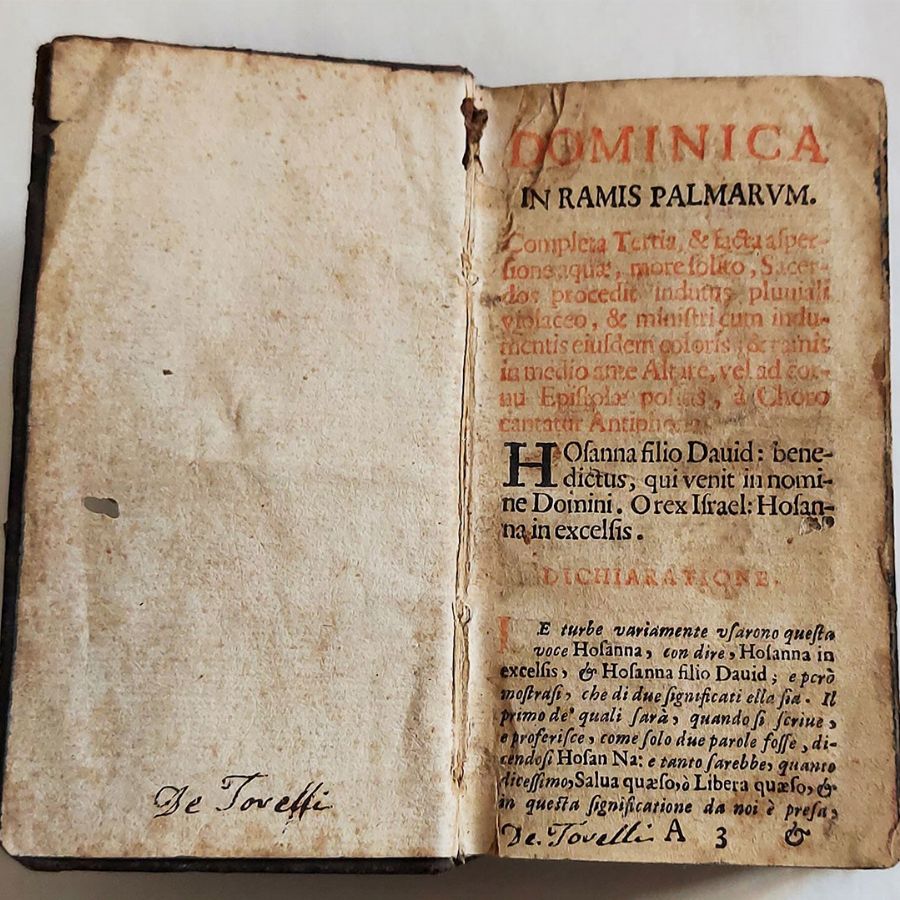 De Torelli
DOMINICA
IN RAMIS PALMARVM.
Completa Tertia, & facta asper-
sione aquæ, more solito, Sacer-
dos procedit indutus pluuiali
violaceo, & ministri cum indu-
mentis eiusdem coloris, & ramis
in medio ante Altare, vel ad cor-
nu Epistolæ positis, à Choro
cantatur Antipho
HOsanna filio Dauid: bene-
dictus, qui venit in nomi-
ne Domini. O rex Israel: Hosan-
na in excelsis.
DICHIARATIONE.
LE turbe variamente vsarono questa
voce Hosanna, con dire, Hosanna in
excelsis, & Hosanna filio Dauid; e però
mostrasi, che di due significati ella sia. Il
primo de' quali sarà, quando si scriue,
e proferisce, come solo due parole fosse, di-
cendosi Hosan Na: e tanto sarebbe, quanto
dicessimo, Salua quæso, ò Libera quæso, &
in questa significatione da noi è presa,
De Torelli A 3 &